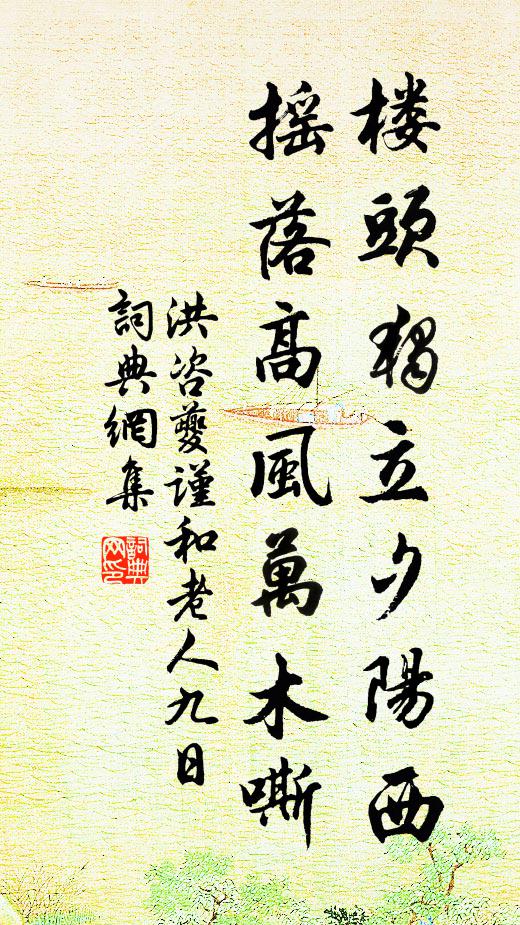 楼頭独立夕陽西
摇落高風萬木嘶
洪咨夔謹和老人九日
詞典網集
詞典网印